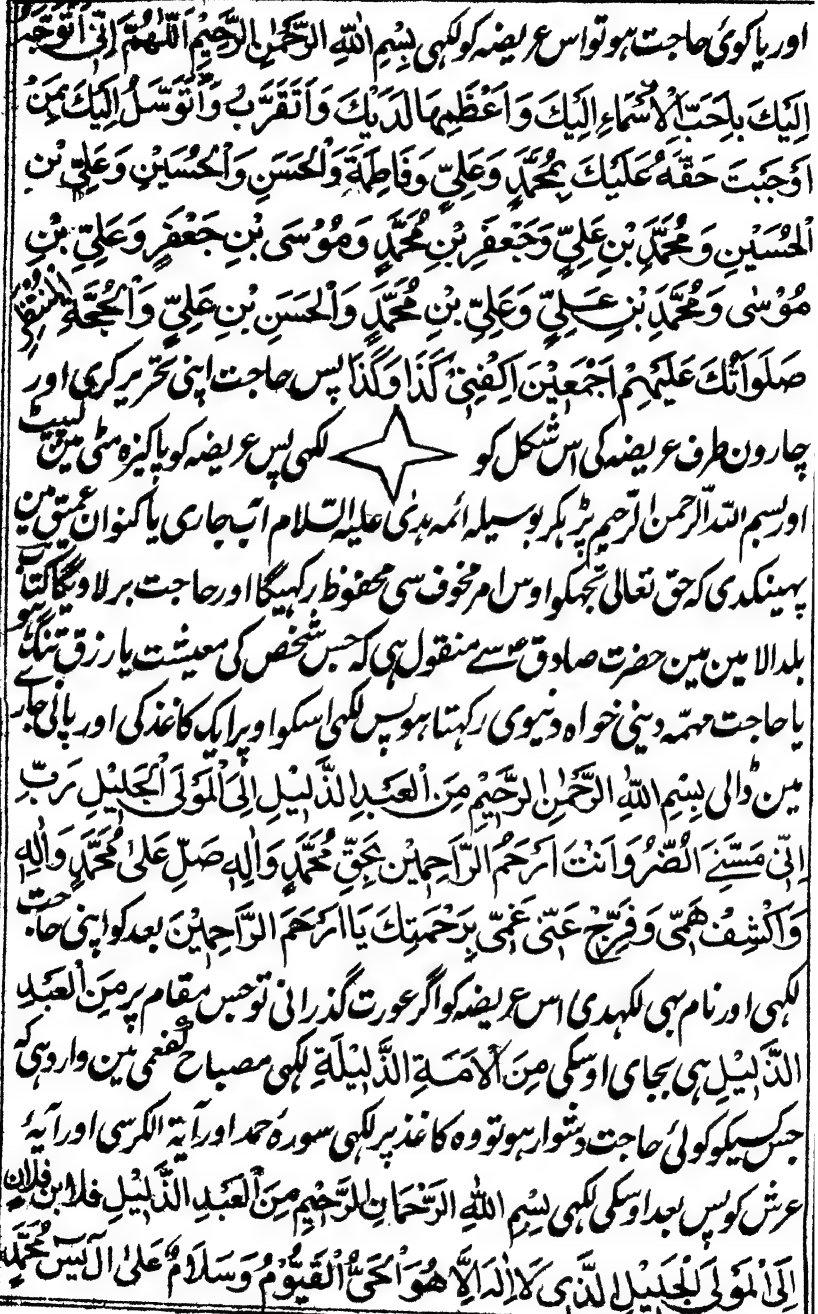 اور یا کوئ حاجت ہو تو اس عریضہ کو لکھی بِسْمِ اللّٰهِ الرَّحْمٰنِ الرَّحِيْمِ اَللّٰهُمَّ اِنِّىْ اَتَوَجَّهُ
اِلَيْكَ بِاَحَبِّ الْاَسْمَاءِ اِلَيْكَ وَاَعْظَمِهَا لَدَيْكَ وَاَتَقَرَّبُ وَاَتَوَسَّلُ اِلَيْكَ بِمَنْ
اَوْجَبْتَ حَقَّهُ عَلَيْكَ بِمُحَمَّدٍ وَعَلِيٍّ وَفَاطِمَةَ وَالْحَسَنِ وَالْحُسَيْنِ وَعَلِيِّ بْنِ
الْحُسَيْنِ وَمُحَمَّدِ بْنِ عَلِيٍّ وَجَعْفَرِ بْنِ مُحَمَّدٍ وَمُوْسَى بْنِ جَعْفَرٍ وَعَلِيِّ بْنِ
مُوْسٰى وَمُحَمَّدِ بْنِ عَلِيٍّ وَعَلِيِّ بْنِ مُحَمَّدٍ وَالْحَسَنِ بْنِ عَلِيٍّ وَالْحُجَّةِ الْمُنْتَظَرِ
صَلَوَاتُكَ عَلَيْهِمْ اَجْمَعِيْنَ اِكْفِنِىْ كَذَا وَكَذَا پس حاجت اپنی تحریر کری اور
چارون طرف عریضہ کی اس شکل کو لکھی پس عریضہ کو پاکیزہ مٹی مین لپیٹ
اور بسم اللہ الرحمن الرحیم پڑہکر بوسیلہ ائمہ ہدٰی علیہ السلام آب جاری یا کنوان عمیق مین
پہینکدی کہ حق تعالی تجہکو اوس امر مخوف سی محفوظ رکہیگا اور حاجت بر لاویگا کتاب
بلد الامین مین حضرت صادق ع سے منقول ہی کہ جس شخص کی معیشت یا رزق تنگ ہو
یا حاجت مہمّہ دینی خواہ دنیوی رکہتا ہو پس لکہی اسکو اوپر ایک کاغذ کی اور پانی جارے
مین ڈالی بِسْمِ اللّٰهِ الرَّحْمٰنِ الرَّحِيْمِ مِنَ الْعَبْدِ الذَّلِيْلِ اِلَى الْمَوْلَى الْجَلِيْلِ رَبِّ
اِنِّىْ مَسَّنِىَ الضُّرُّ وَاَنْتَ اَرْحَمُ الرَّاحِمِيْنَ بِحَقِّ مُحَمَّدٍ وَاٰلِهٖ صَلِّ عَلىٰ مُحَمَّدٍ وَاٰلِهٖ
وَاكْشِفْ هَمِّىْ وَفَرِّجْ عَنِّىْ غَمِّىْ بِرَحْمَتِكَ يَا اَرْحَمَ الرَّاحِمِيْنَ بعد کو اپنی حاجت
لکہی اور نام بہی لکہدی اس عریضہ کو اگر عورت گذرانی تو جس مقام پر مِنَ الْعَبْدِ
الذَّلِيْلِ ہی بجای اوسکی مِنَ الْاَمَةِ الذَّلِيْلَةِ لکہی مصباح کفعمی مین وارد ہی کہ
جس کسیکو کوئی حاجت دشوار ہو تو وہ کاغذ پر لکہی سورۂ حمد اور آیۃ الکرسی اور آیۂ
عرش کو پس بعد اوسکی لکہی بِسْمِ اللّٰهِ الرَّحْمَانِ الرَّحِيْمِ مِنَ الْعَبْدِ الذَّلِيْلِ فلان ابن فلان
اِلَى الْمَوْلَى الْجَلِيْلِ الَّذِى لَا اِلٰهَ اِلَّا هُوَ الْحَىُّ الْقَيُّوْمُ وَسَلَامٌ عَلىٰ اٰلِ يٰسٓ مُحَمَّدٍ